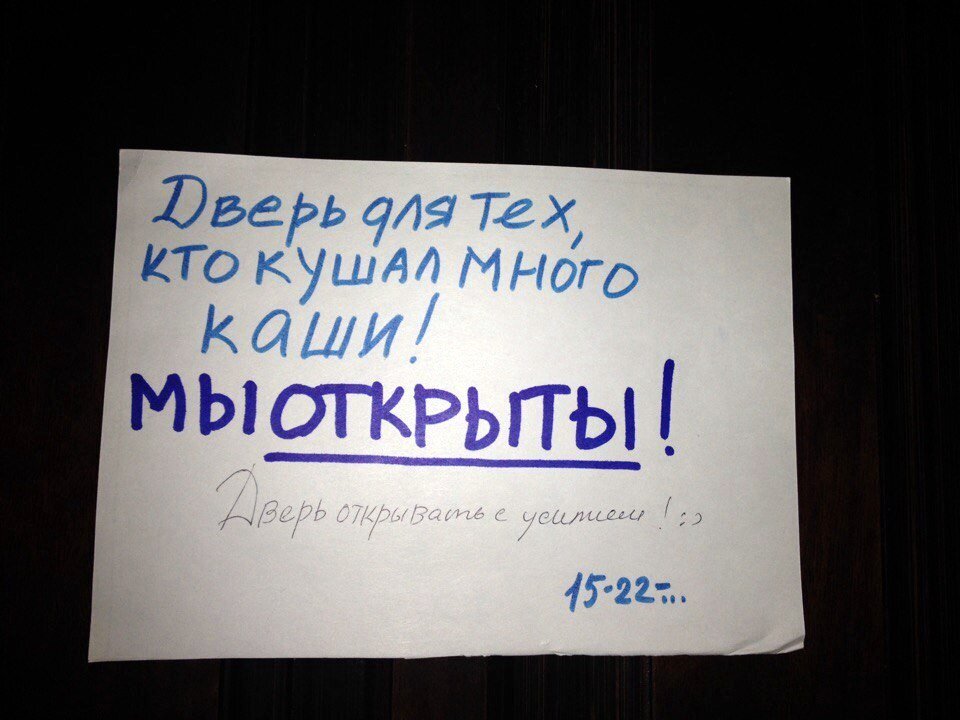 Дверь для тех,
кто кушал много
каши!
МЫ ОТКРЫТЫ!
Дверь открывать с усилием! :)
15-22-...